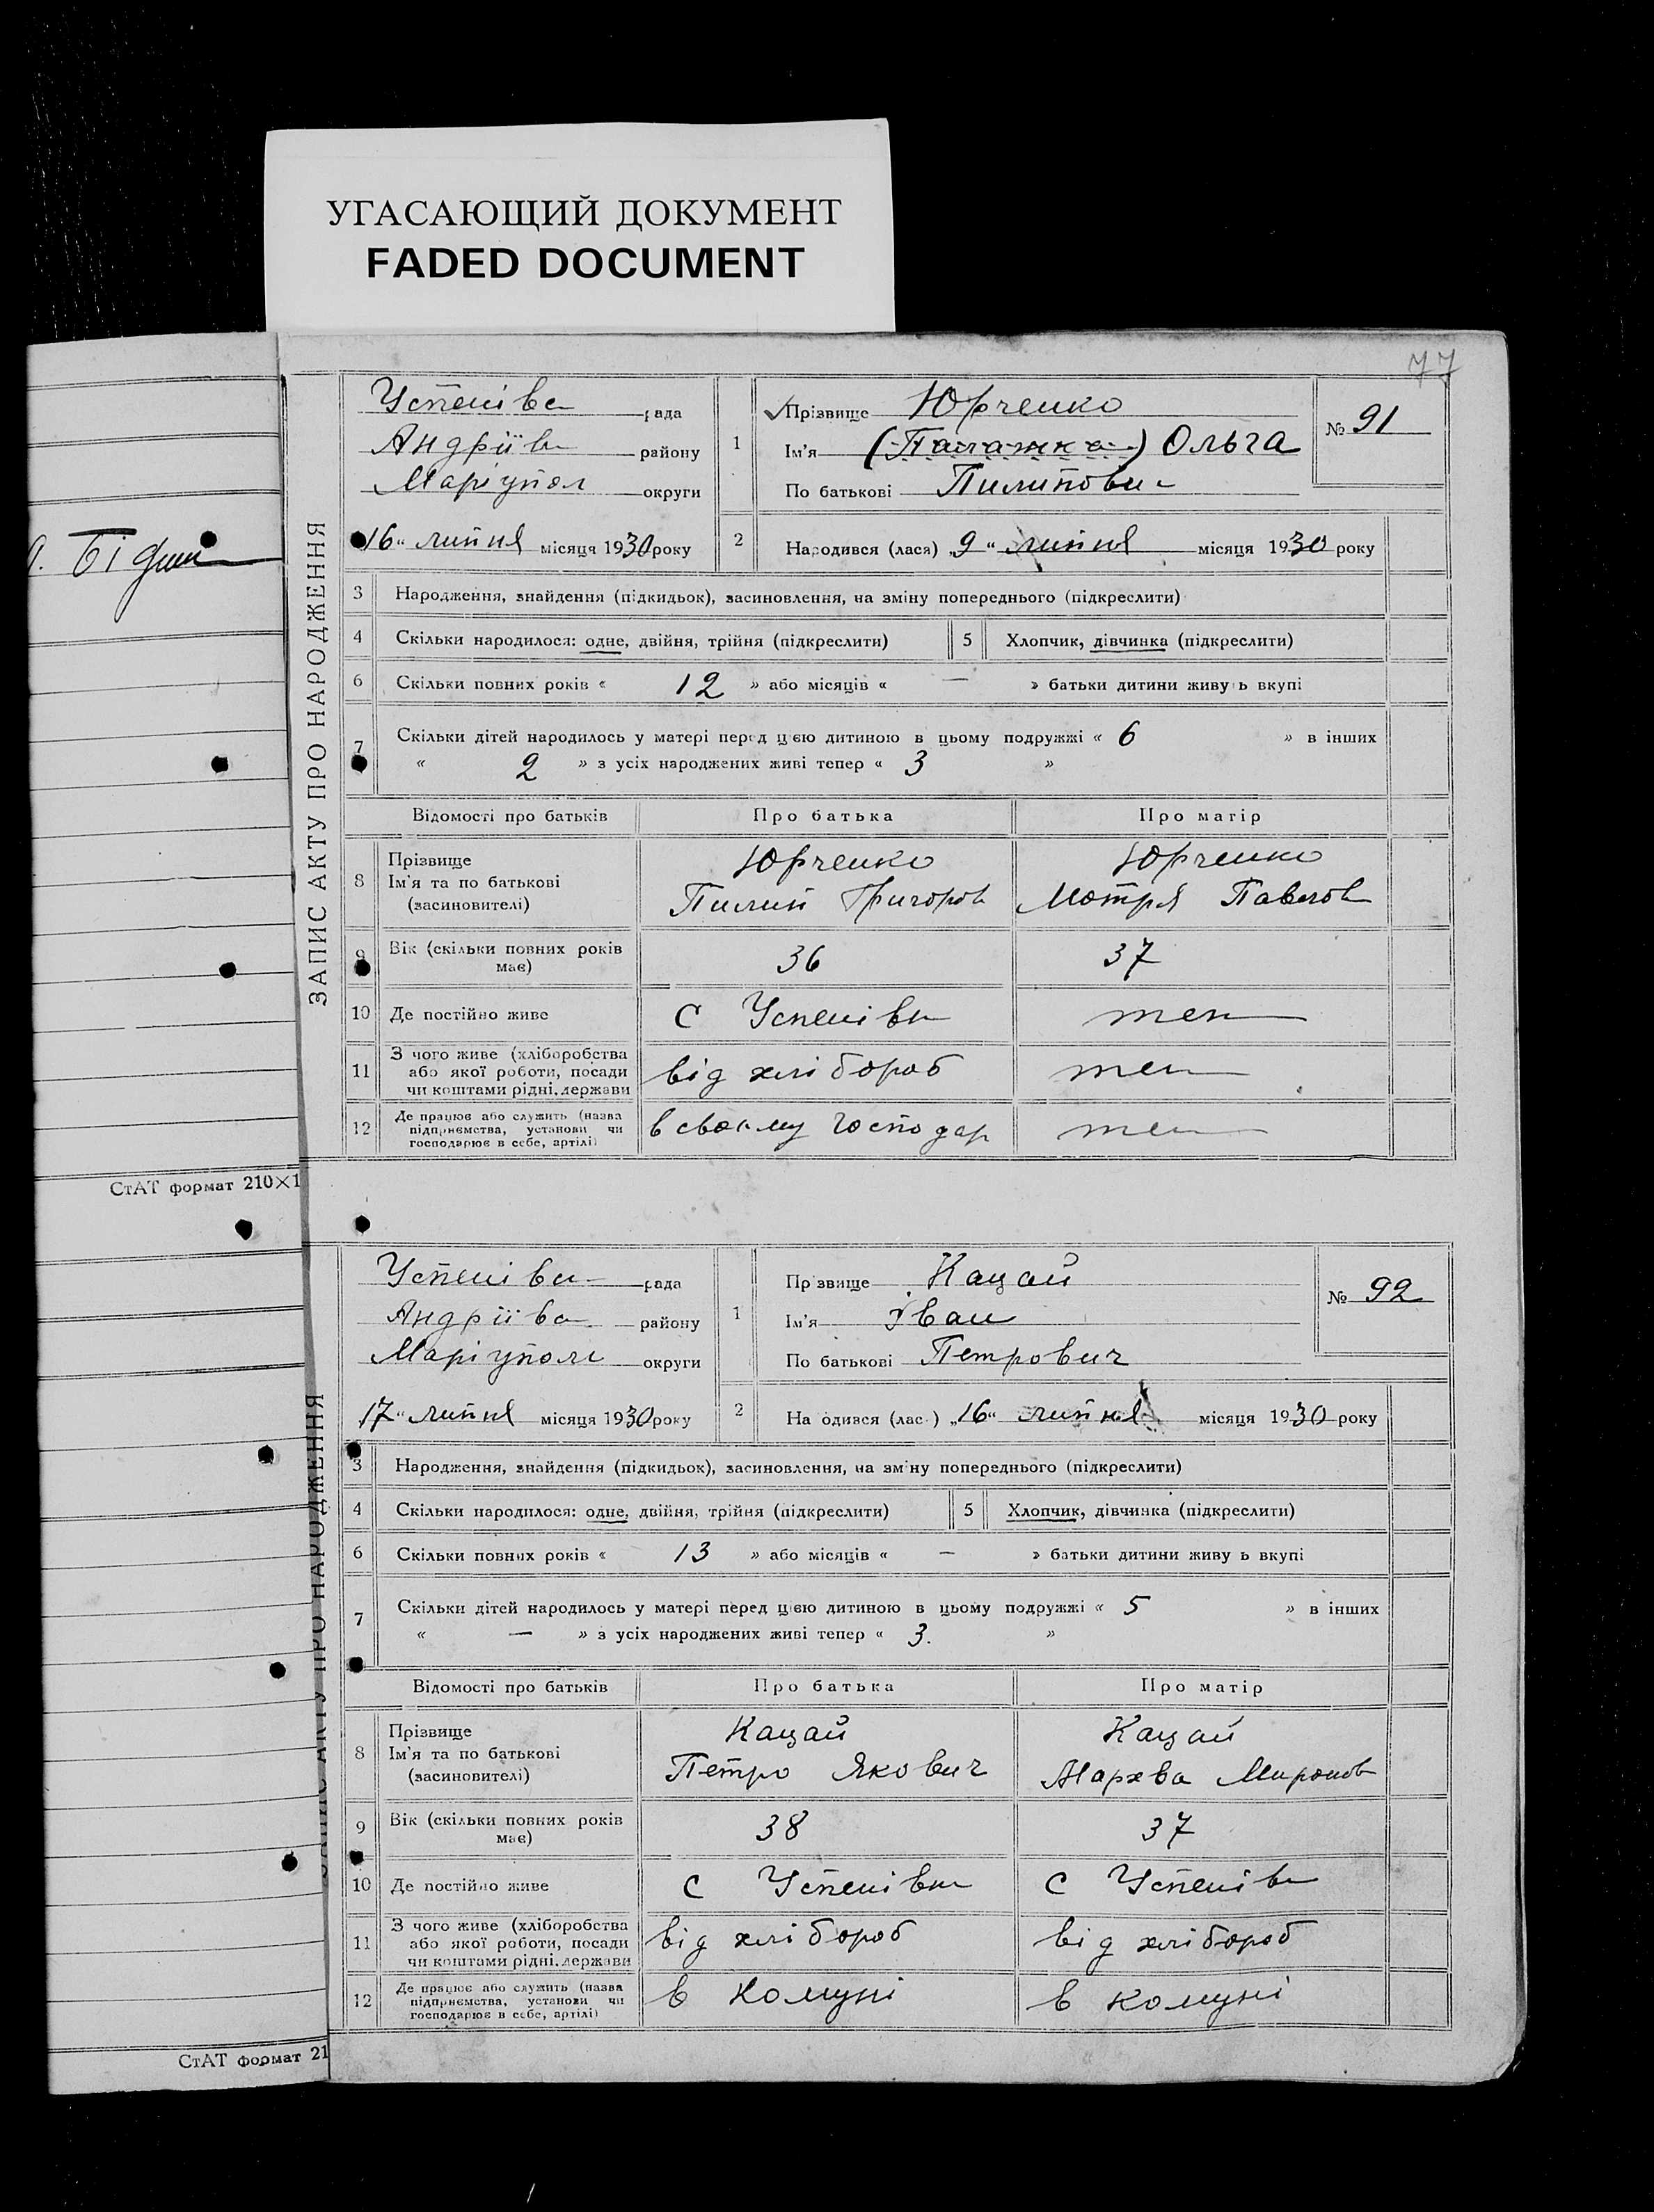 УГАСАЮЩИЙ ДОКУМЕНТ
FADED DOCUMENT
77
ЗАПИС АКТУ ПРО НАРОДЖЕННЯ
Успенівс рада
Андріїв району
Маріупол округи
16 липня місяця 1930 року
1
Прізвище Юрченко
Ім'я (Палажка) Ольга
По батькові Пилипови
№ 91
2
Народився (лася) „9“ липня місяця 1930 року
3 Народження, знайдення (підкидьок), засиновлення, на зміну попереднього (підкреслити)
4 Скільки народилося: одне, двійня, трійня (підкреслити) 5 Хлопчик, дівчинка (підкреслити)
6 Скільки повних років « 12 » або місяців « — » батьки дитини живуть вкупі
7 Скільки дітей народилось у матері перед цією дитиною в цьому подружжі « 6 » в інших
« 2 » з усіх народжених живі тепер « 3 »
Відомості про батьків Про батька Про матір
8 Прізвище
Ім'я та по батькові
(засиновителі)
Юрченко
Пилип Григоров
Юрченко
Мотря Павлов
9 Вік (скільки повних років
має)
36 37
10 Де постійно живе с Успенівки теж
11 З чого живе (хліборобства
або якої роботи, посади
чи коштами рідні, держави
від хлібороб теж
12 Де працює або служить (назва
підприємства, установи чи
господарює в себе, артілі)
в своєму господар теж
СтАТ формат 210×1
ЗАПИС АКТУ ПРО НАРОДЖЕННЯ
Успенівс рада
Андріївс району
Маріупол округи
17“ липня місяця 1930 року
1
Прізвище Кацай
Ім'я Іван
По батькові Петрович
№ 92
2
Народився (лася) „16“ липня місяця 1930 року
3 Народження, знайдення (підкидьок), засиновлення, на зміну попереднього (підкреслити)
4 Скільки народилося: одне, двійня, трійня (підкреслити) 5 Хлопчик, дівчинка (підкреслити)
6 Скільки повних років « 13 » або місяців « — » батьки дитини живуть вкупі
7 Скільки дітей народилось у матері перед цією дитиною в цьому подружжі « 5 » в інших
« — » з усіх народжених живі тепер « 3. »
Відомості про батьків Про батька Про матір
8 Прізвище
Ім'я та по батькові
(засиновителі)
Кацай
Петро Якович
Кацай
Мархва Миронов
9 Вік (скільки повних років
має)
38 37
10 Де постійно живе с Успенівки с Успенів
11 З чого живе (хліборобства
або якої роботи, посади
чи коштами рідні, держави
від хлібороб від хлібороб
12 Де працює або служить (назва
підприємства, установи чи
господарює в себе, артілі)
в комуні в комуні
СтАТ формат 21